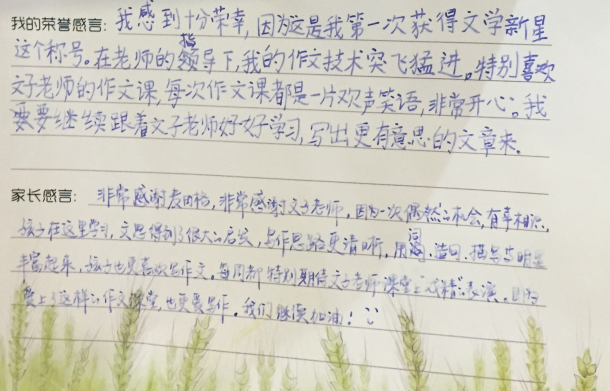 我的荣誉感言:我感到十分荣幸,因为这是我第一次获得文学新星
这个称号。在老师的指导下,我的作文技术突飞猛进。特别喜欢
文子老师的作文课,每次作文课都是一片欢声笑语,非常开心。我
要继续跟着文子老师好好学习,写出更有意思的文章来。
家长感言: 非常感谢麦田格,非常感谢文子老师,因为一次偶然的机会,有幸相识。
孩子在这里学习,文思得到了很大的启发,写作思路更清晰,用词、造句、描写等明显
丰富起来,孩子也更喜欢写作文。每周都特别期待文子老师课堂上"戏精"表演。因为
爱上了这样的作文课堂,也更爱写作。我们继续加油!